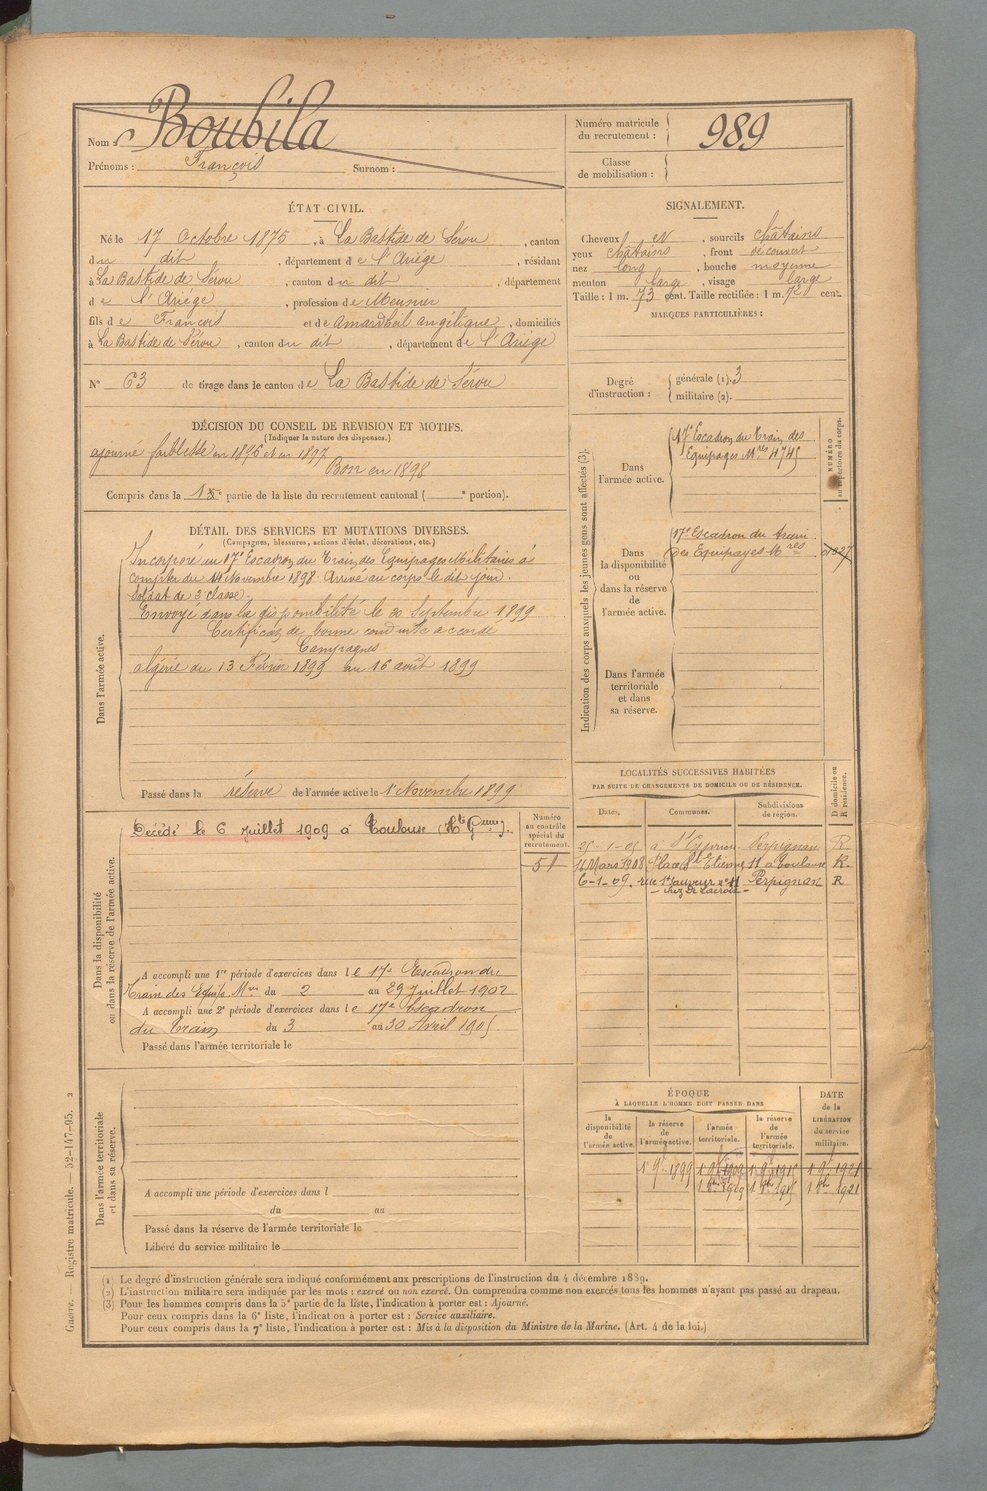 Nom : Boubila
Prénoms : François Surnom :
Numéro matricule du recrutement : 989
Classe de mobilisation :
ÉTAT CIVIL.
Né le 17 Octobre 1875, à La Bastide de Sérou, canton
du dit, département de l'Ariége, résidant
à La Bastide de Sérou, canton du dit, département
de l'Ariége, profession de Meunier
fils de François et de Amardheil angélique, domiciliés
à La Bastide de Sérou, canton du dit, département de l'Ariége
N° 63 de tirage dans le canton de La Bastide de Sérou
SIGNALEMENT.
Cheveux et, sourcils châtains
yeux châtains, front découvert
nez long, bouche moyenne
menton large, visage large
Taille : 1 m. 73 cent. Taille rectifiée : 1 m. cent.
MARQUES PARTICULIÈRES :
Degré d'instruction : générale (1). 3
militaire (2).
DÉCISION DU CONSEIL DE REVISION ET MOTIFS.
(Indiquer la nature des dispenses.)
ajourné faiblesse en 1896 et en 1897
Bon en 1898
Compris dans la partie de la liste du recrutement cantonal ( portion).
DÉTAIL DES SERVICES ET MUTATIONS DIVERSES.
(Campagnes, blessures, actions d'éclat, décorations, etc.)
Dans l'armée active.
Incorporé au 17e Escadron du Train des Equipages Militaires à
compter du 14 Novembre 1898. Arrivé au corps le dit jour.
Soldat de 2e classe.
Envoyé dans la disponibilité le 20 Septembre 1899
Certificat de bonne conduite accordé
Campagnes
algérie du 13 Février 1899 au 16 août 1899
Passé dans la réserve de l'armée active le 1 Novembre 1899
Indication des corps auxquels les jeunes gens sont affectés (3).
NUMÉRO au répertoire du corps.
Dans l'armée active.
17e Escadron du Train des
Equipages Mres 4745
Dans la disponibilité ou dans la réserve de l'armée active.
17e Escadron du train
des Equipages Mres 1327
Dans l'armée territoriale et dans sa réserve.
Dans la disponibilité ou dans la réserve de l'armée active.
Décédé le 6 Juillet 1909 à Toulouse (Hte Gnne).
Numéro au contrôle spécial du recrutement.
51
A accompli une 1re période d'exercices dans le 17e Escadron du
Train des Equip. Mres du 2 au 29 Juillet 1902
A accompli une 2e période d'exercices dans le 17e Escadron
du train du 3 au 30 Avril 1905
Passé dans l'armée territoriale le
LOCALITÉS SUCCESSIVES HABITÉES
PAR SUITE DE CHANGEMENTS DE DOMICILE OU DE RÉSIDENCE.
Dates. Communes. Subdivisions de région. D domicile ou R résidence.
25-1-05 à St Cyprien Perpignan R.
16 Mars 1908 Place St Etienne 11 à Toulouse R.
6-1-09. rue St Sauveur n° 11 Perpignan R
- chez Dr Lacroix -
Dans l'armée territoriale et dans sa réserve.
A accompli une période d'exercices dans l
du au
Passé dans la réserve de l'armée territoriale le
Libéré du service militaire le
ÉPOQUE
À LAQUELLE L'HOMME DOIT PASSER DANS
la disponibilité de l'armée active. la réserve de l'armée active. l'armée territoriale. la réserve de l'armée territoriale. DATE de la LIBÉRATION du service militaire.
1 9bre 1899 1 9bre 1909 1 9bre 1915 1 9bre 1921
(1) Le degré d'instruction générale sera indiqué conformément aux prescriptions de l'instruction du 4 décembre 1889.
(2) L'instruction militaire sera indiquée par les mots : exercé ou non exercé. On comprendra comme non exercés tous les hommes n'ayant pas passé au drapeau.
(3) Pour les hommes compris dans la 5e partie de la liste, l'indication à porter est : Ajourné.
Pour ceux compris dans la 6e liste, l'indication à porter est : Service auxiliaire.
Pour ceux compris dans la 7e liste, l'indication à porter est : Mis à la disposition du Ministre de la Marine. (Art. 4 de la loi.)
Guerre. — Registre matricule. — 52-147-95. 2